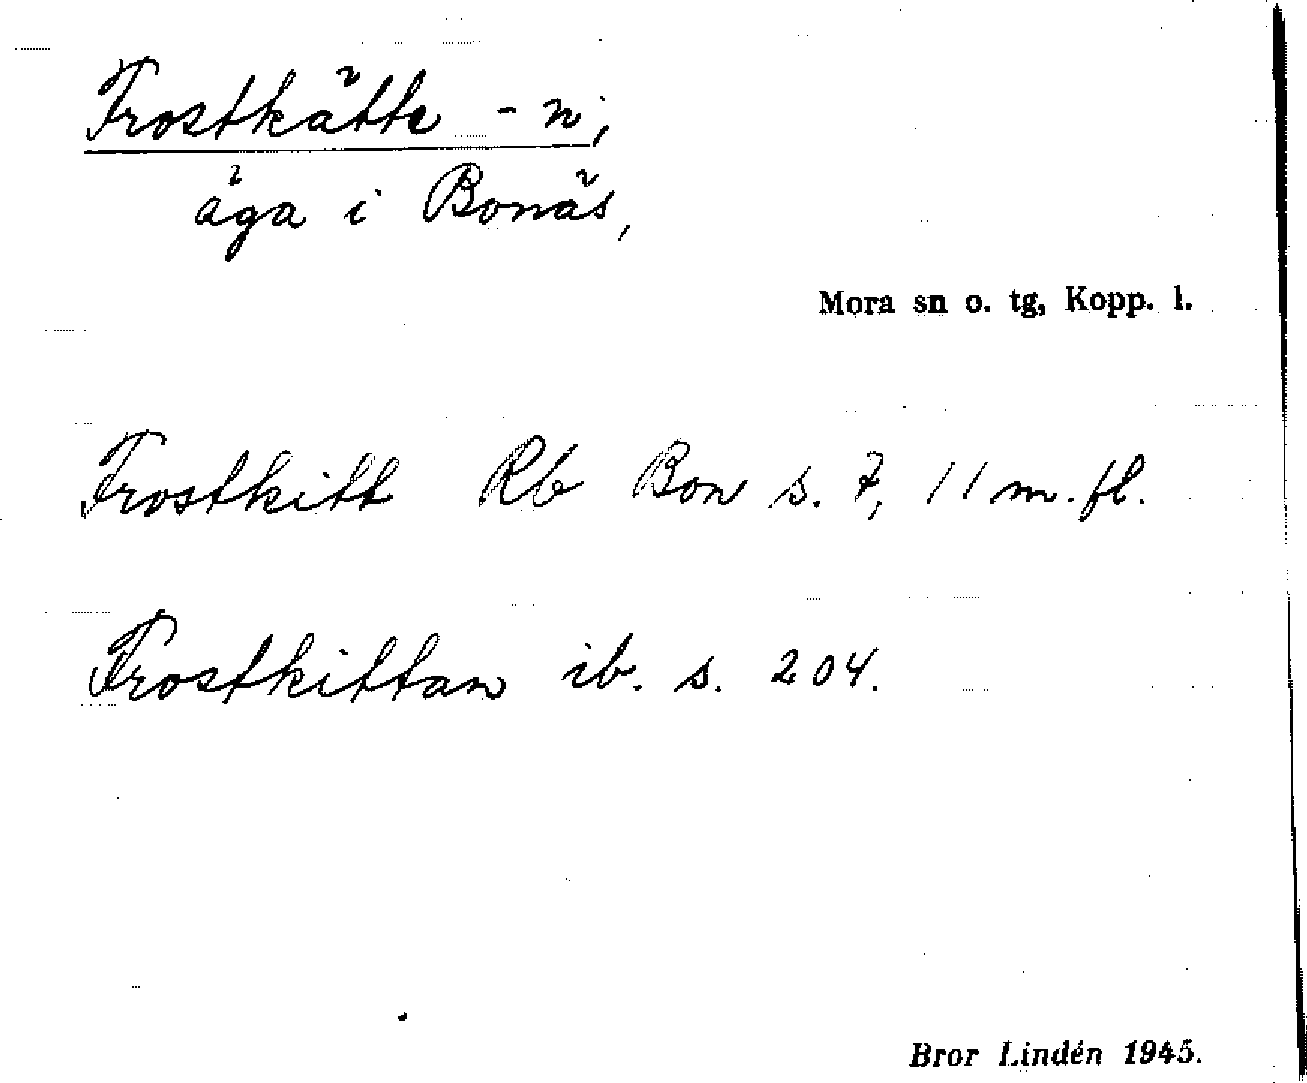 Frostkätte -n,
äga i Bonäs,
Mora sn o. tg, Kopp. l.
Frostkitt Rb Bon s. 7, 11 m. fl.
Frostkittan ib. s. 204.
Bror Lindén 1945.